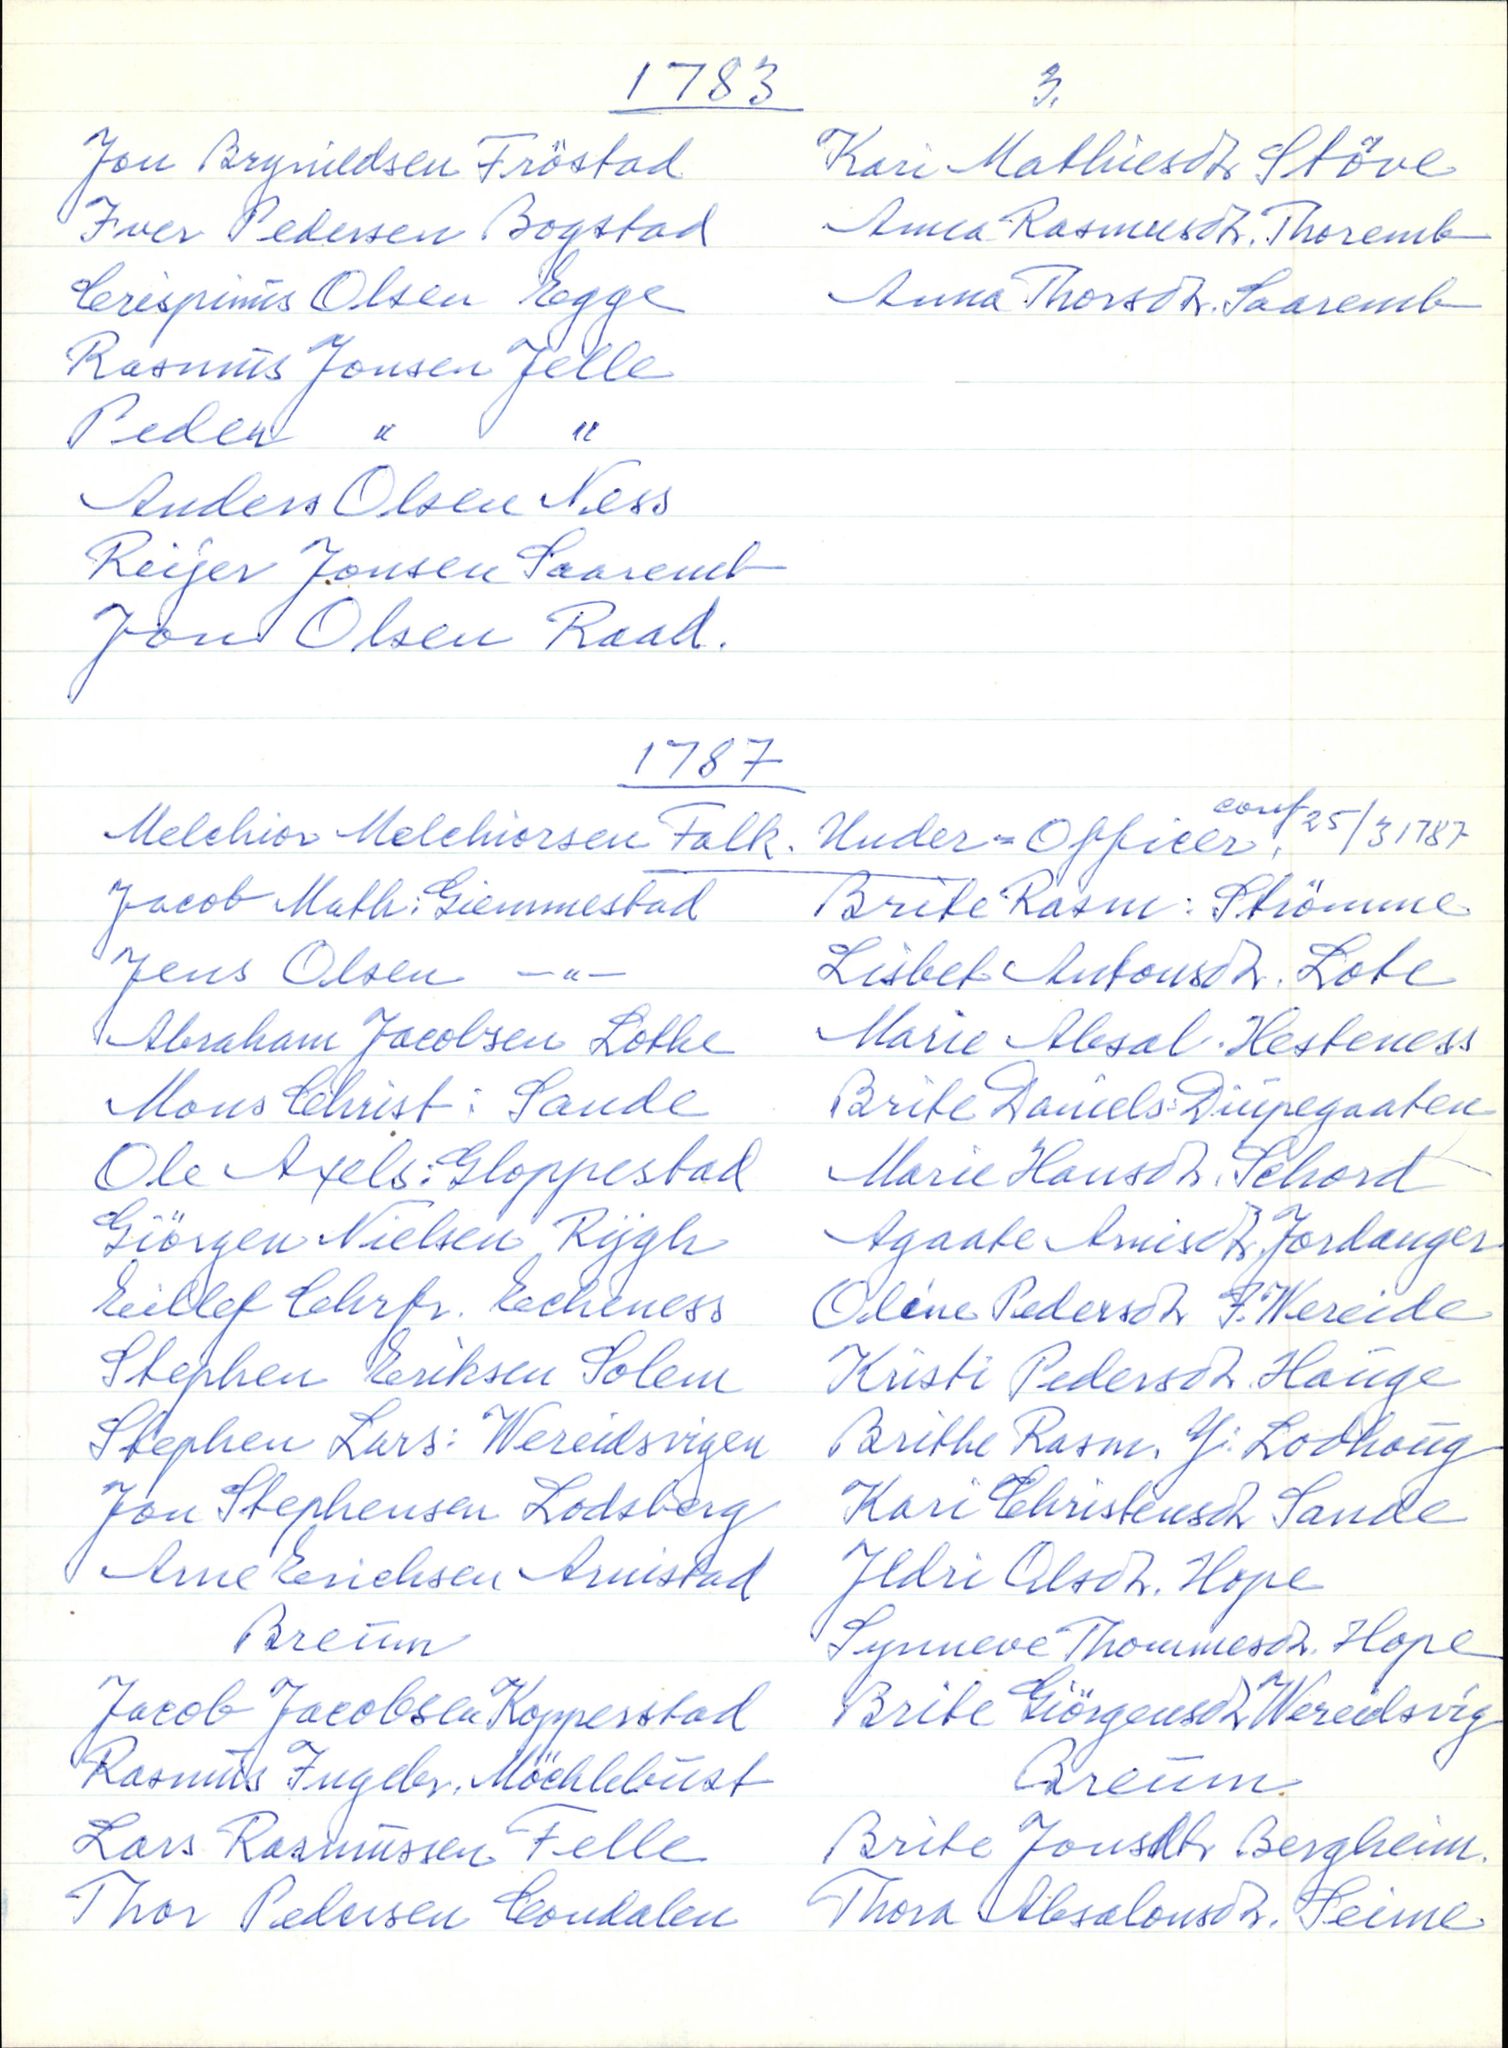 1783 3.
Jon Brynildsen Fröstad
Iver Pedersen Bogstad
Crispinus Olsen Egge
Rasmus Jonsen Jelle
Peder " "
Anders Olsen Ness
Reijer Jonsen Saaremb
Jon Olsen Raad.
Kari Mathiesdtr Stöve
Anna Rasmusdtr. Thoremb
Anna Thorsdtr. Saaremb
1787
Melchior Melchiorsen Falk. Under=Officer, conf 25/3 1787
Jacob Math: Giemmestad
Jens Olsen —"—
Abraham Jacobsen Lothe
Mons Christ: Sande
Ole Axels: Gloppestad
Giörgen Nielsen Rijgh
Eillef Chrfr. Echeness
Stephen Eriksen Solem
Stephen Lars: Wereidsvigen
Jon Stephensen Lodsberg
Arne Erichsen Arnistad
Breum
Jacob Jacobsen Kopperstad
Rasmus Ingebr. Möchlebust
Lars Rasmussen Felle
Thor Pedersen Condalen
Brite Rasm: Strömme
Lisbet Antonsdtr. Lote
Marie Absal. Hesteness
Brite Daniels: Diupegaaten
Marie Hansdtr. Schord
Agaate Arnisdtr. Jordanger
Oline Pedersdtr F. Wereide
Kristi Pedersdtr. Hauge
Brithe Rasm. Y: Lodhoug
Kari Christensdtr Sande
Jldri Olsdtr. Hope
Synneve Thommesdtr. Hope
Brite Giörgensdtr Wereidsvig
Breum
Brite Jonsdtr Bergheim.
Thora Absalonsdtr. Seime